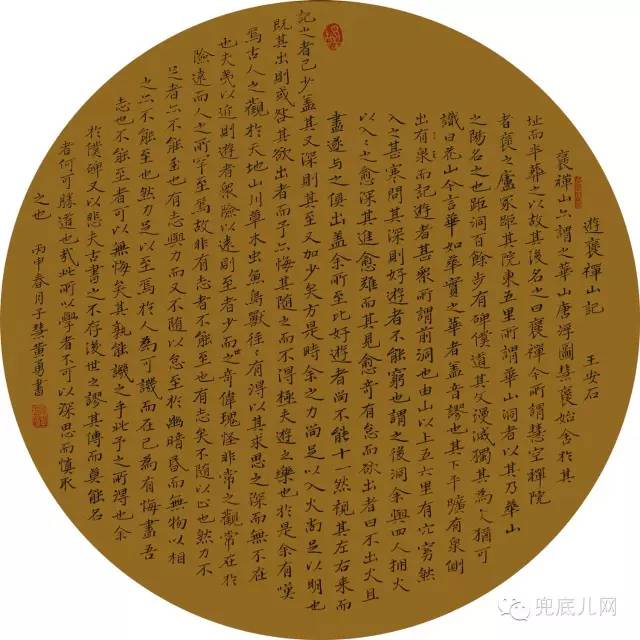 遊褒禪山記 王安石
褒禪山亦謂之華山唐浮圖慧褒始舍於其
址而卒葬之以故其後名之曰褒禪今所謂慧空禪院
者褒之廬冢距其院東五里所謂華山洞者以其乃華山
之陽名之也距洞百餘步有碑僕道其文漫滅獨其為文猶可
識曰花山今言華如華實之華者蓋音謬也其下平曠有泉側
出有泉而記遊者甚衆所謂前洞也由山以上五六里有穴窈然
入之甚寒問其深則好遊者不能窮也謂之後洞余與四人拥火
以入:之愈深其進愈難而其見愈奇有怠而欲出者曰不出火且
盡遂與之俱出蓋余所至比好遊者尚不能十一然視其左右来而
記之者已少蓋其又深則其至又加少矣方是時余之力尚足以入火尚足以明也
既其出則或咎其欲出者而予亦悔其隨之而不得極夫遊之樂也於是余有嘆
焉古人之觀於天地山川草木虫魚鳥獸往:有得以其求思之深而無不在
也夫夷以近則遊者衆險以遠則至者少而世之奇偉瑰怪非常之觀常在於
險遠而人之所罕至焉故非有志者不能至也有志矣不隨以止也然力不
足者亦不能至也有志與力而又不隨以怠至於幽暗昏而無物以相
之亦不能至也然力足以至焉於人為可譏而在己為有悔盡吾
志也不能至者可以無悔矣其孰能譏之乎此予之所得也余
於僕碑又以悲夫古書之不存後世之謬其傳而莫能名
者何可勝道也哉此所以學者不可以深思而慎取
之也 丙申春月子慧黃勇書
兜底儿网